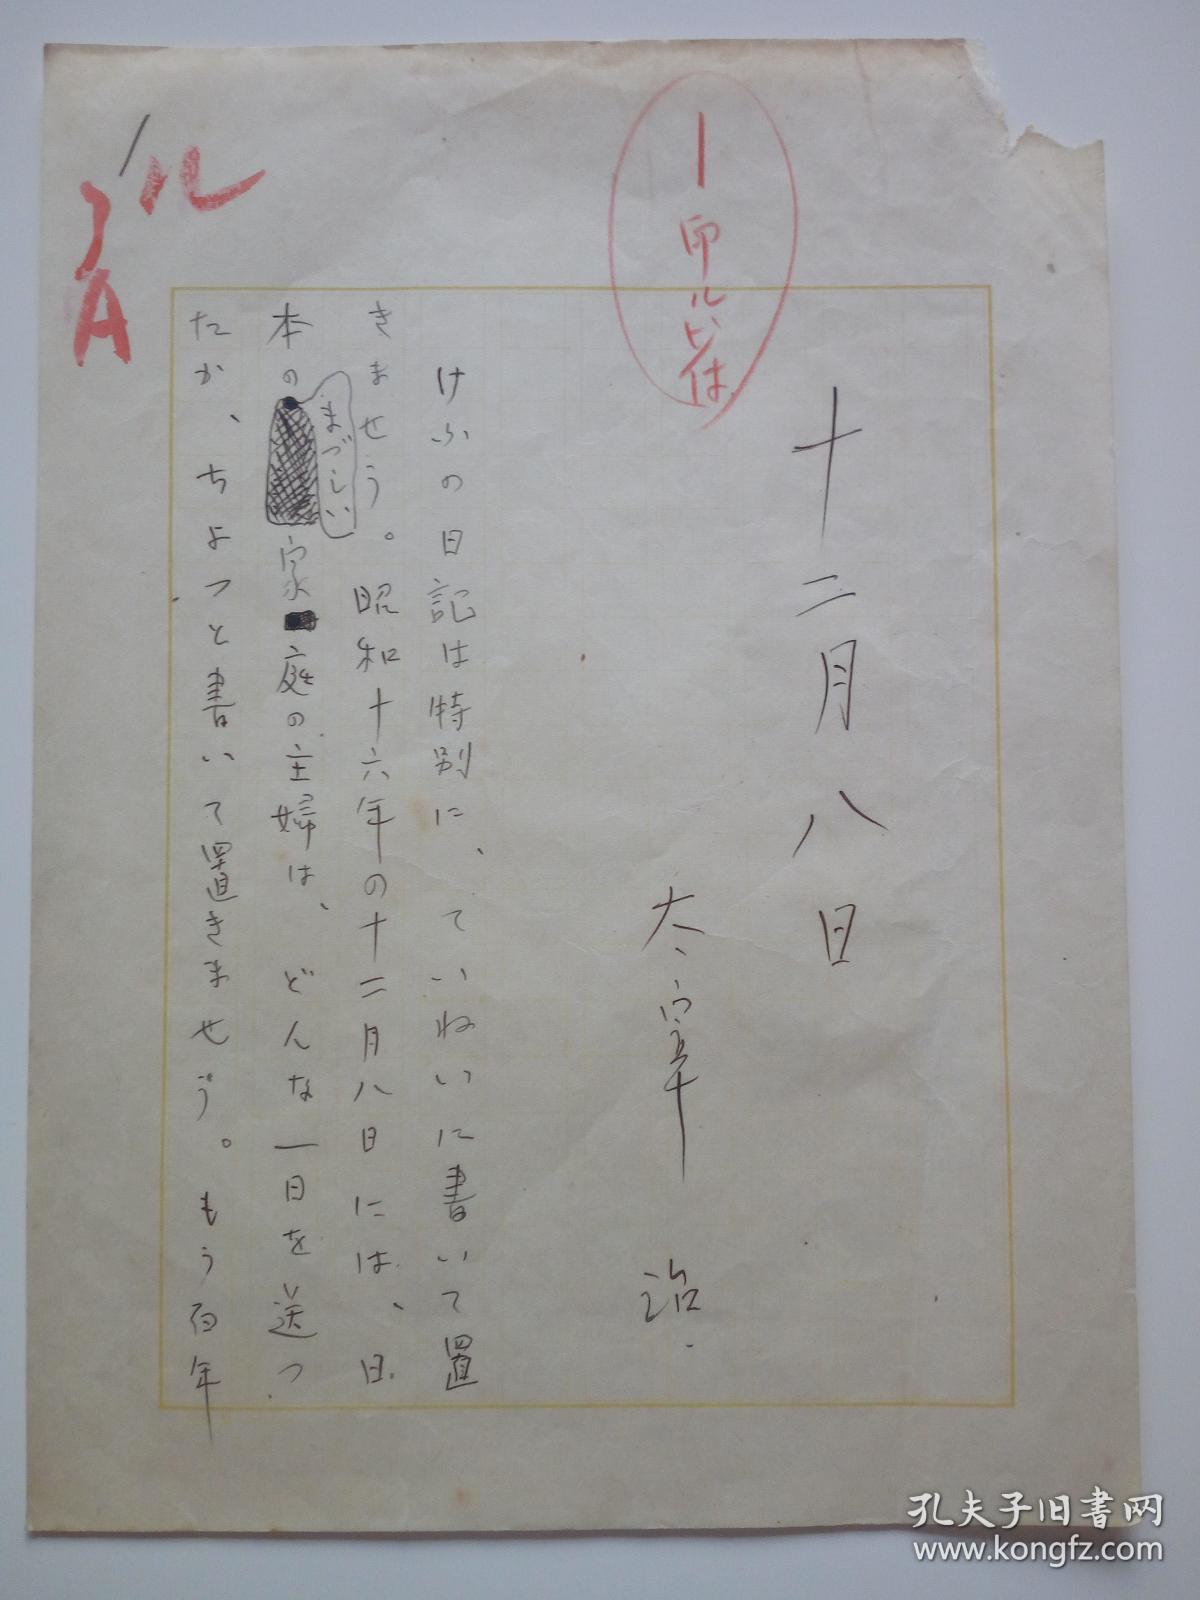 一印ルビ付
十二月八日
太宰 治
けふの日記は特別に、ていねいに書いて置
きませう。昭和十六年の十二月八日には、日
本のまづしい家庭の主婦は、どんな一日を送つ
たか、ちよつと書いて置きませう。もう百年
A
孔夫子旧书网
www.kongfz.com